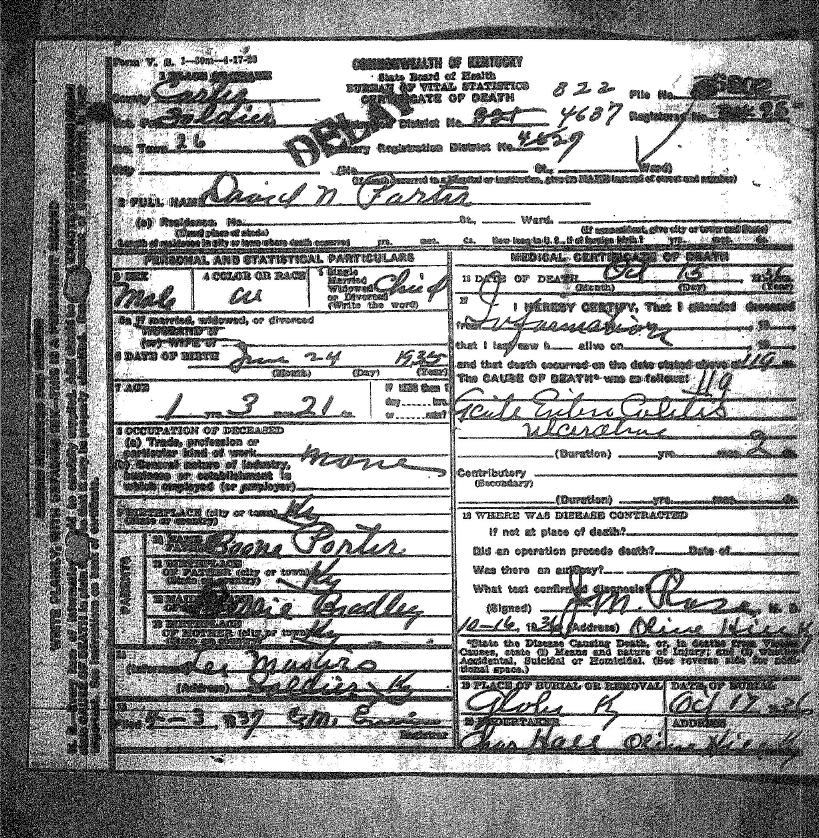 Form V. S. 1-50m-4-17-25
COMMONWEALTH OF KENTUCKY
State Board of Health
BUREAU OF VITAL STATISTICS
CERTIFICATE OF DEATH
1 PLACE OF DEATH
County Carter
Soldier
Town 26
DELAY
822
File No.
District No. 4687
Registered No. 95
Registration District No. 4629
City (No. St., Ward)
(If death occurred in a hospital or institution, give its NAME instead of street and number)
2 FULL NAME David N Porter
(a) Residence. No. St., Ward.
(Usual place of abode) (If nonresident, give city or town and State)
Length of residence in city or town where death occurred yrs. mos. ds. How long in U. S., if of foreign birth? yrs. mos. ds.
PERSONAL AND STATISTICAL PARTICULARS
3 SEX Male
4 COLOR OR RACE W
5 Single Married Widowed or Divorced (Write the word) Child
5a If married, widowed, or divorced
HUSBAND of
(or) WIFE of
6 DATE OF BIRTH June 24 1935
(Month) (Day) (Year)
7 AGE
1 yrs. 3 mos. 21 ds.
If LESS than 1
day hrs.
or min.?
8 OCCUPATION OF DECEASED
(a) Trade, profession or
particular kind of work none
(b) General nature of industry,
business or establishment in
which employed (or employer)
9 BIRTHPLACE (city or town) Ky
(State or country)
PARENTS
10 NAME OF FATHER Boone Porter
11 BIRTHPLACE
OF FATHER (city or town) Ky
12 MAIDEN NAME
OF Bradley
13 BIRTHPLACE
OF MOTHER (city or town) Ky
14
(Informant) Lee Masters
(Address) Soldier Ky
15
Filed 4-3 1937
Registrar
MEDICAL CERTIFICATE OF DEATH
16 DATE OF DEATH Oct 15 1936
(Month) (Day) (Year)
17
I HEREBY CERTIFY, That I attended deceased
from Information 19
that I last saw h alive on 19
and that death occurred on the date stated above at 119 m.
The CAUSE OF DEATH* was as follows: 119
Acute Entero Colitis
ulcerative
(Duration) yrs. mos. 2 ds.
Contributory
(Secondary)
(Duration) yrs. mos. ds.
18 WHERE WAS DISEASE CONTRACTED
If not at place of death?
Did an operation precede death? Date of
Was there an autopsy?
What test confirmed diagnosis?
(Signed) J. M. Rose, M. D.
10-16, 1936 (Address) Olive Hill Ky
*State the Disease Causing Death, or, in deaths from Violent
Causes, state (1) Means and nature of Injury; and (2) whether
Accidental, Suicidal or Homicidal. (See reverse side for addi-
tional space.)
19 PLACE OF BURIAL OR REMOVAL
DATE OF BURIAL
Globe Ky
Oct 17 1936
20 UNDERTAKER
ADDRESS
Chas Hall Olive Hill Ky